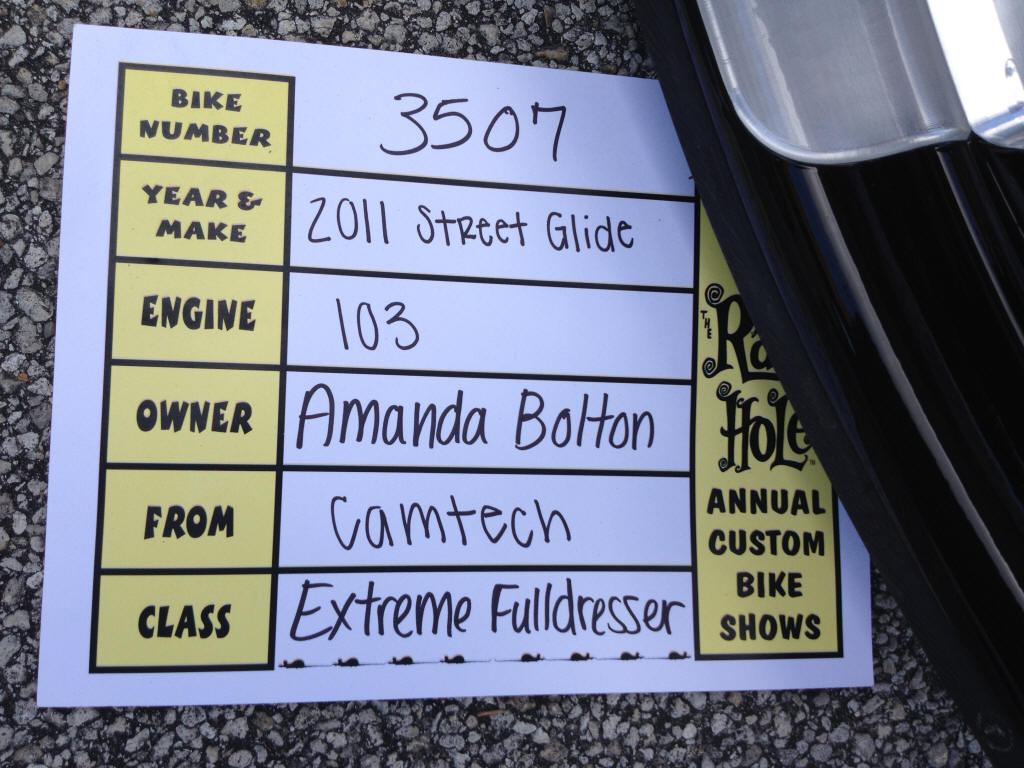 BIKE NUMBER 3507
YEAR & MAKE 2011 Street Glide
ENGINE 103
OWNER Amanda Bolton
FROM Camtech
CLASS Extreme Fulldresser
THE
HOLE
ANNUAL
CUSTOM
BIKE
SHOWS